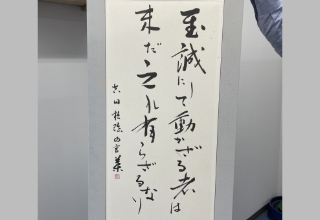 至誠にして動かざる者は
未だ之れ有らざるなり
吉田松陰の言葉